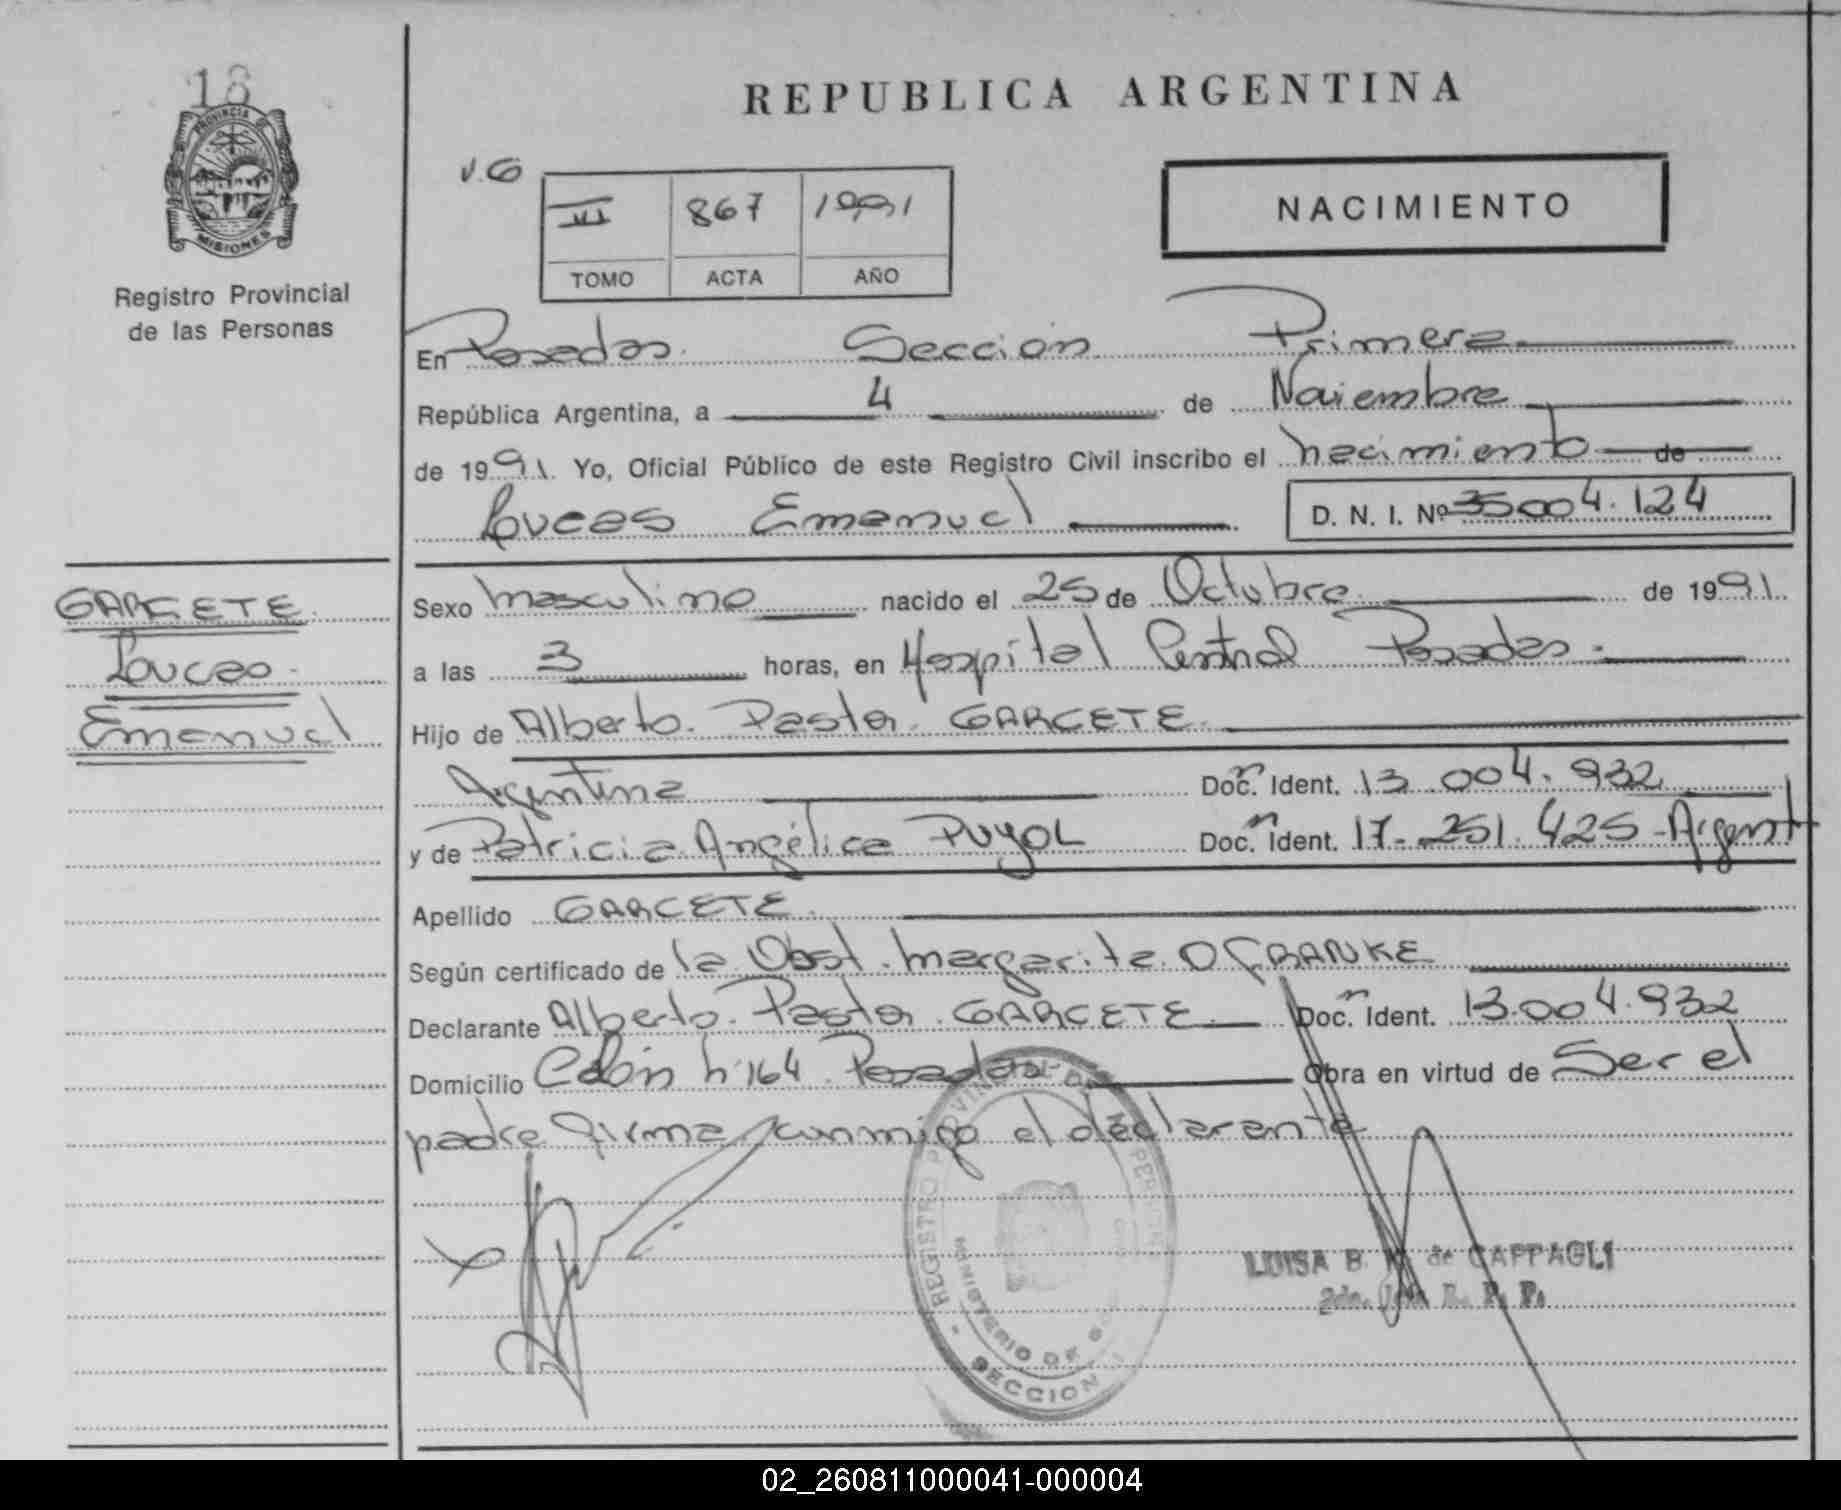 18
PROVINCIA DE
MISIONES
Registro Provincial
de las Personas
GARCETE
Loucas
Emanuel
REPUBLICA ARGENTINA
V.G
III 867 1991
TOMO ACTA AÑO
NACIMIENTO
En Posadas. Sección Primera
República Argentina, a 4 de Noviembre
de 1991. Yo, Oficial Público de este Registro Civil inscribo el nacimiento de
Loucas Emanuel D. N. I. Nº 35004.124
Sexo masculino nacido el 25 de Octubre de 1991.
a las 3 horas, en Hospital Central Posadas.
Hijo de Alberto. Pastor. GARCETE.
Argentina Doc. Ident. 13.004.932
y de Patricia Angélica PUYOL Doc. Ident. 17.251.425 - Argent
Apellido GARCETE.
Según certificado de la Obst. Margarita O FRANKE
Declarante Alberto. Pastor. GARCETE Doc. Ident. 13.004.932
Domicilio Colón nº 164. Posadas Obra en virtud de Ser el
padre firma conmigo el declarante
REGISTRO PROVINCIAL DE
MINISTERIO DE
SECCION
LUISA B. de CAPPAGLI
02_260811000041-000004